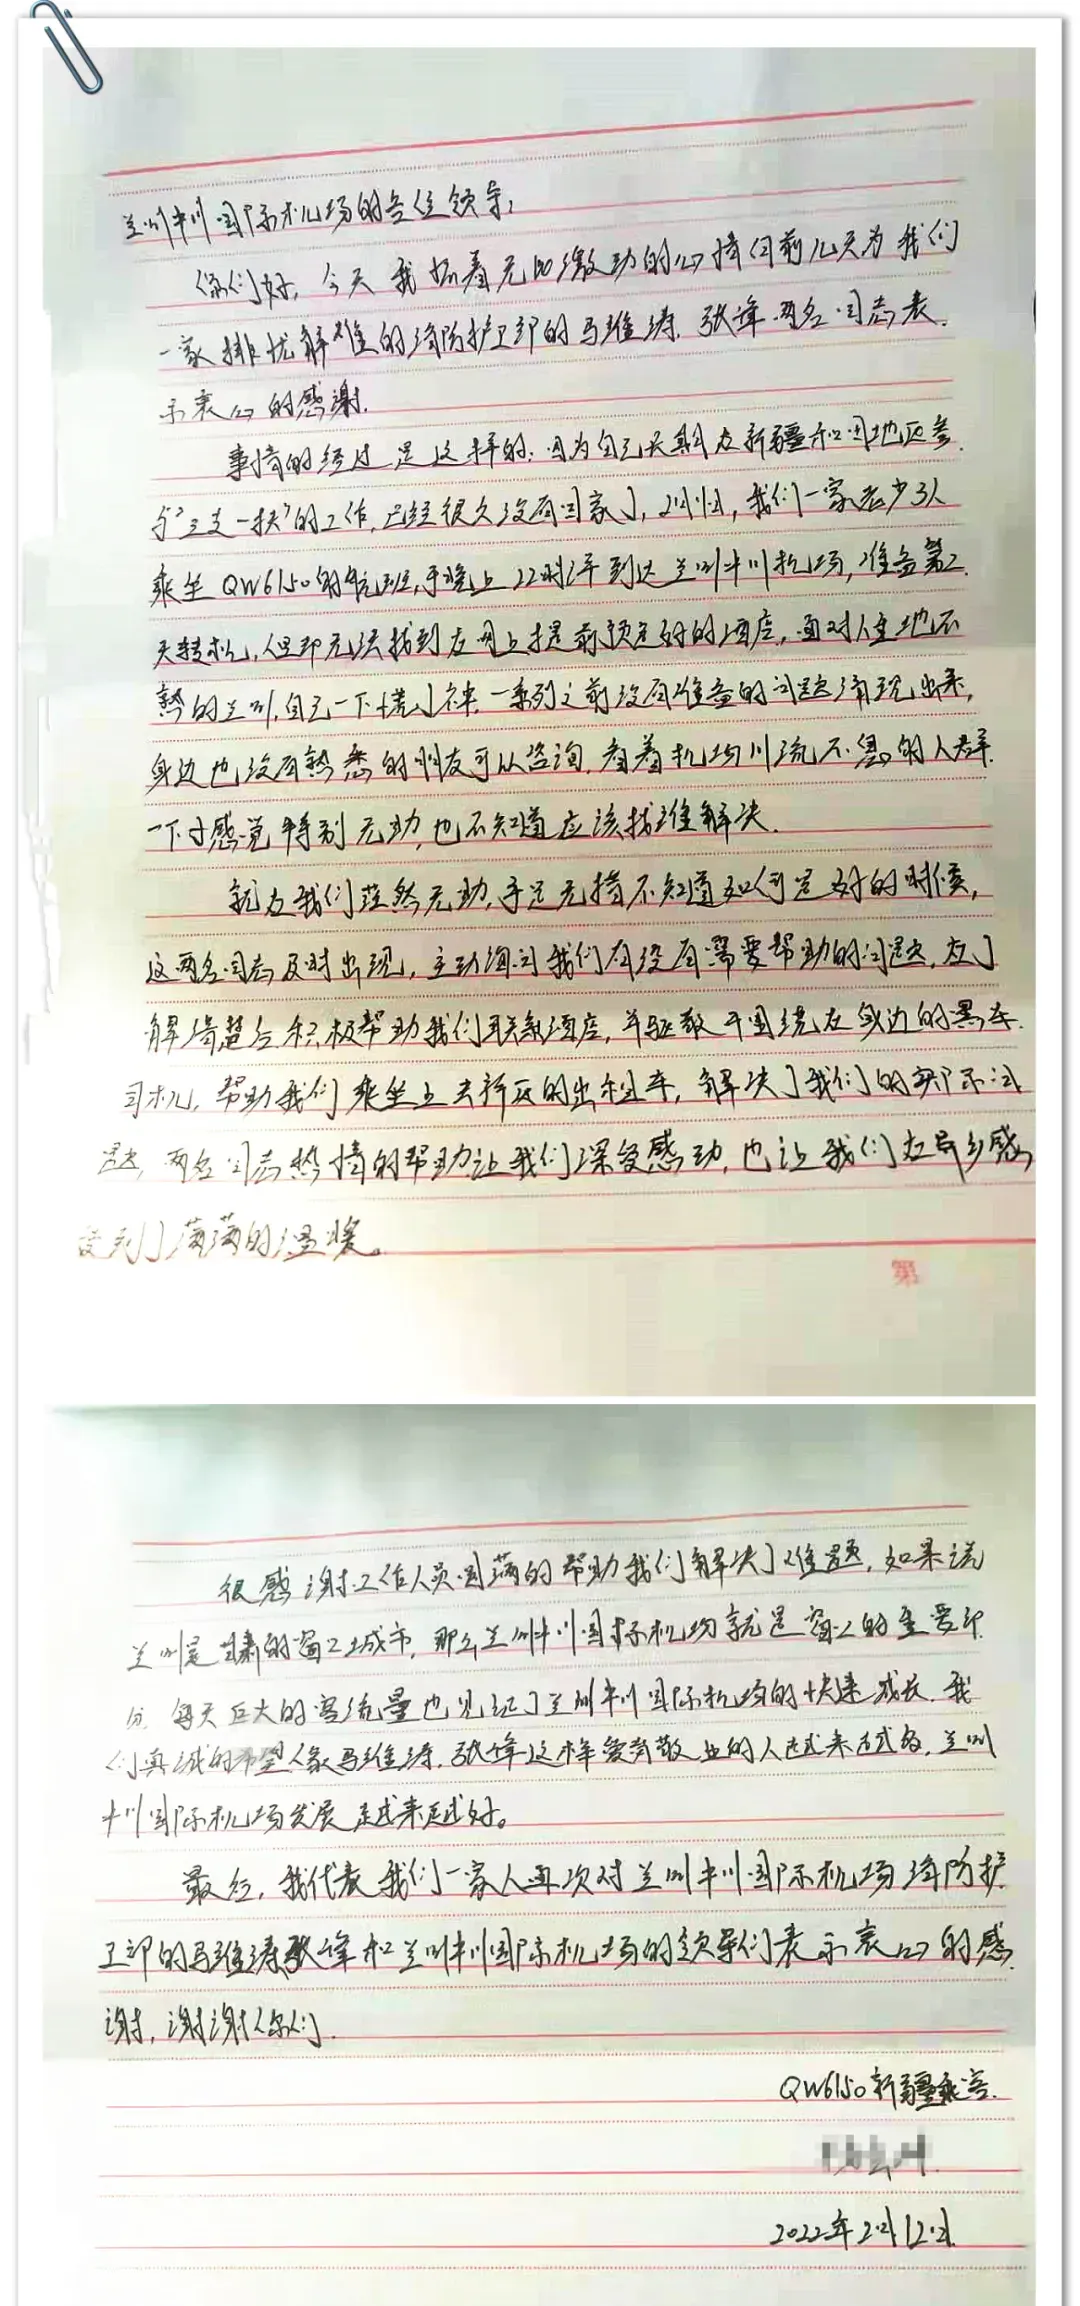 兰州中川国际机场的各位领导:
你们好,今天我怀着无比激动的心情向前几天为我们
一家排忧解难的消防护卫部的马维涛、张锋两名同志表
示衷心的感谢.
事情的经过是这样的:因为自己长期在新疆和田地区参
与"三支一扶"的工作,已经很久没有回家了,我们一家老少3人
乘坐QW6150的航班,于晚上22时许到达兰州中川机场,准备第二
天转机,但却无法找到在网上提前预定好的酒店,面对人生地不
熟的兰州,自己一下慌了神.一系列之前没有准备的问题涌现出来,
身边也没有熟悉的朋友可以咨询.看着机场川流不息的人群.
一下子感觉特别无助,也不知道应该找谁解决.
就在我们茫然无助,手足无措不知道如何是好的时候,
这两名同志及时出现,主动询问我们有没有需要帮助的问题,在了
解清楚后积极帮助我们联系酒店,并驱散开围绕在身边的黑车
司机,帮助我们乘坐上去折返的出租车,解决了我们的实际问
题,两名同志热情的帮助让我们深受感动,也让我们在异乡感
受到了满满的温暖。
第
很感谢工作人员圆满的帮助我们解决了难题,如果说
兰州是甘肃的窗口城市,那么兰州中川国际机场就是窗口的重要部
分,每天巨大的客流量也见证了兰州中川国际机场的快速成长.我
们真诚的希望像马维涛.张锋这样爱岗敬业的人越来越多,兰州
中川国际机场发展越来越好。
最后,我代表我们一家人再次对兰州中川国际机场消防护
卫部的马维涛张锋和兰州中川国际机场的领导们表示衷心的感
谢,谢谢你们.
QW6150新疆乘客.
2022年2月12日